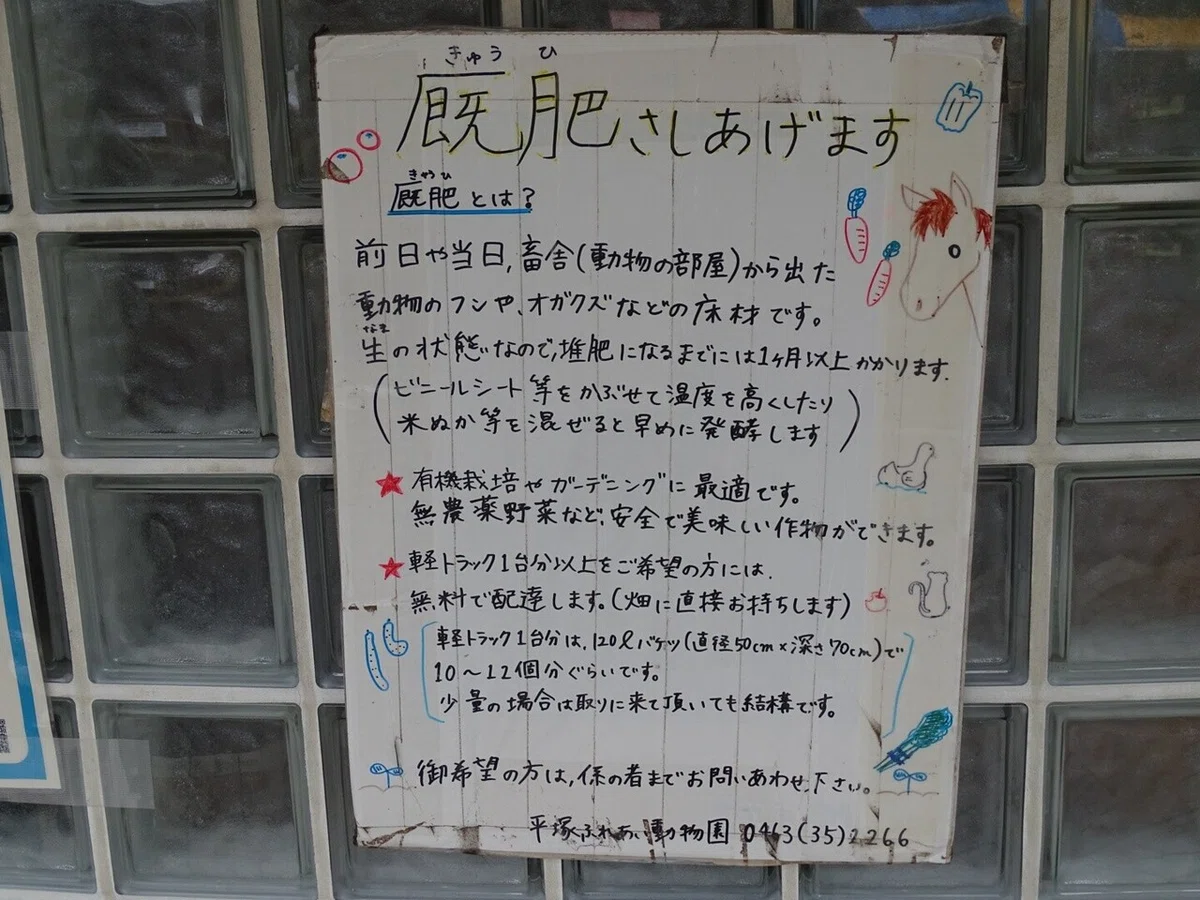 きゅうひ
厩肥さしあげます
きゅうひ
厩肥とは?
前日や当日,畜舎(動物の部屋)から出た
動物のフンや、オガクズなどの床材です。
なま
生の状態なので,堆肥になるまでには1ヶ月以上かかります.
(ビニールシート等をかぶせて温度を高くしたり
米ぬか等を混ぜると早めに発酵します)
★有機栽培やガーデニングに最適です。
無農薬野菜など、安全で美味しい作物ができます。
★軽トラック1台分以上をご希望の方には.
無料で配達します。(畑に直接お持ちします)
軽トラック1台分は,120ℓバケツ(直径50cm×深さ70cm)で
10〜12個分ぐらいです。
少量の場合は取りに来て頂いても結構です。
御希望の方は,係の者までお問いあわせ下さい。
平塚ふれあい動物園 0463(35)2266